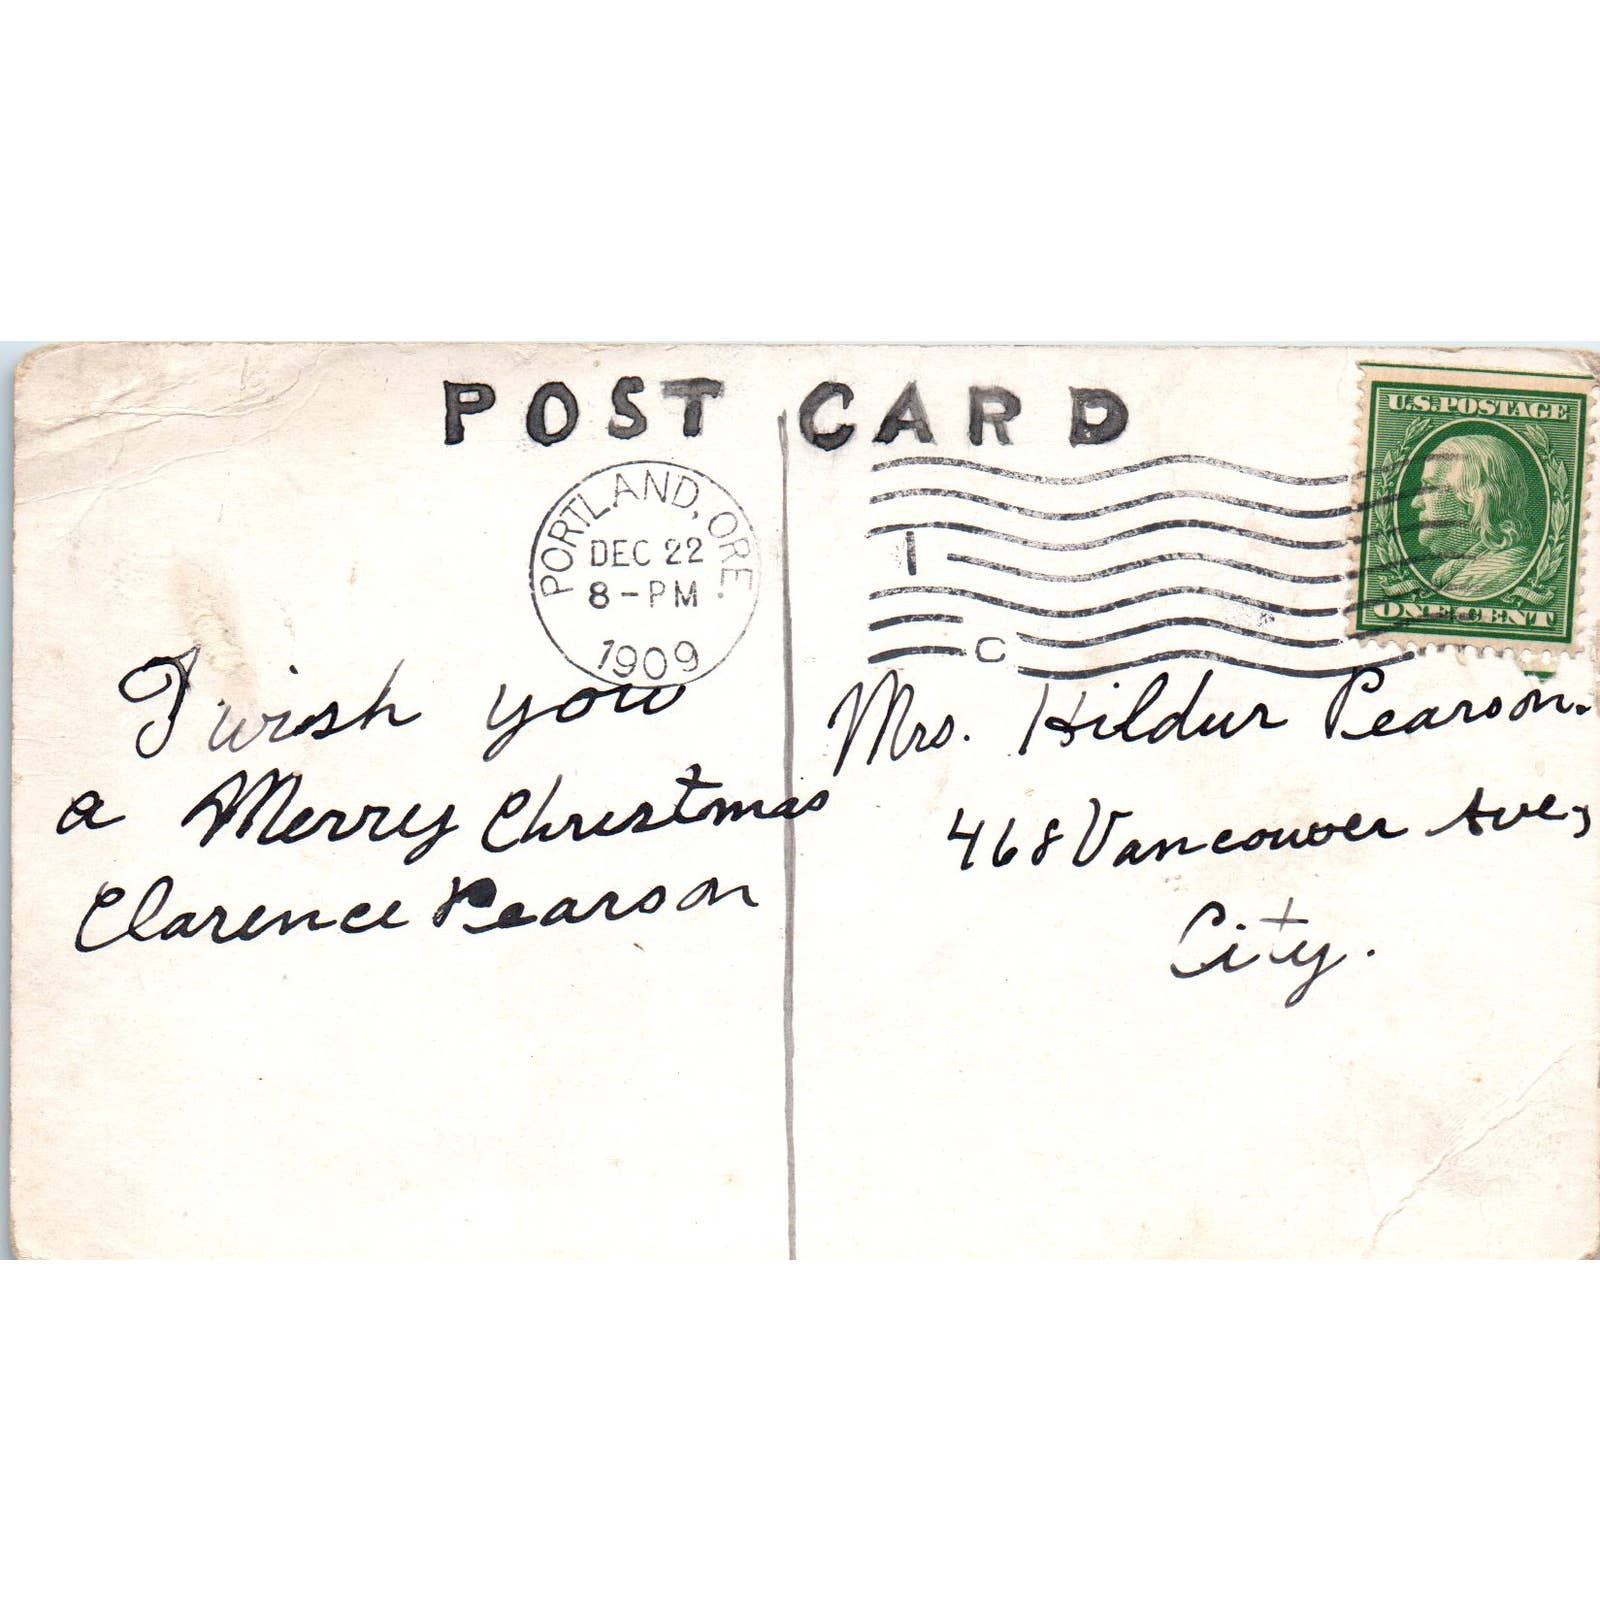 POST CARD
PORTLAND, ORE.
DEC 22
8-PM
1909
1
C
U.S. POSTAGE
ONE CENT
I wish you
a Merry Christmas
Clarence Pearson
Mrs. Hildur Pearson.
468 Vancouver Ave,
City.